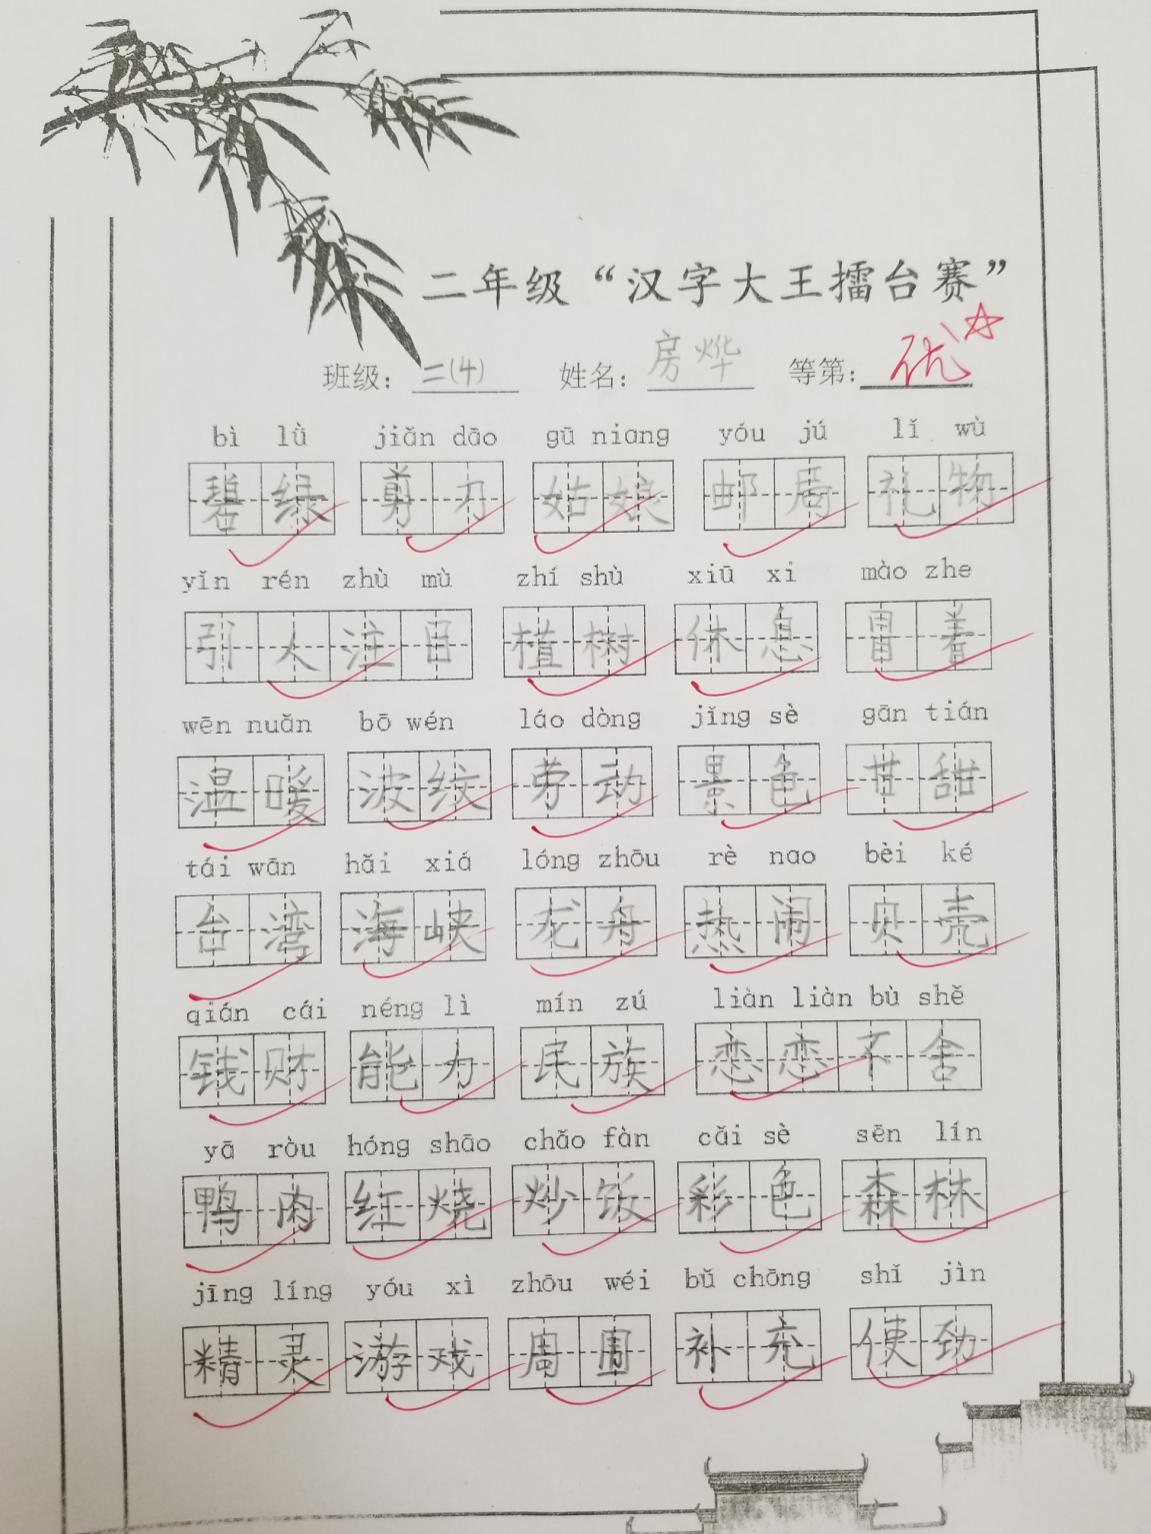 二年级“汉字大王擂台赛”
班级：二(4) 姓名：房烨 等第：优
bì lǜ jiǎn dāo gū niang yóu jú lǐ wù
碧绿 剪刀 姑娘 邮局 礼物
yǐn rén zhù mù zhí shù xiū xi mào zhe
引人注目 植树 休息 冒着
wēn nuǎn bō wén láo dòng jǐng sè gān tián
温暖 波纹 劳动 景色 甘甜
tái wān hǎi xiá lóng zhōu rè nao bèi ké
台湾 海峡 龙舟 热闹 贝壳
qián cái néng lì mín zú liàn liàn bù shě
钱财 能力 民族 恋恋不舍
yā ròu hóng shāo chǎo fàn cǎi sè sēn lín
鸭肉 红烧 炒饭 彩色 森林
jīng líng yóu xì zhōu wéi bǔ chōng shǐ jìn
精灵 游戏 周围 补充 使劲